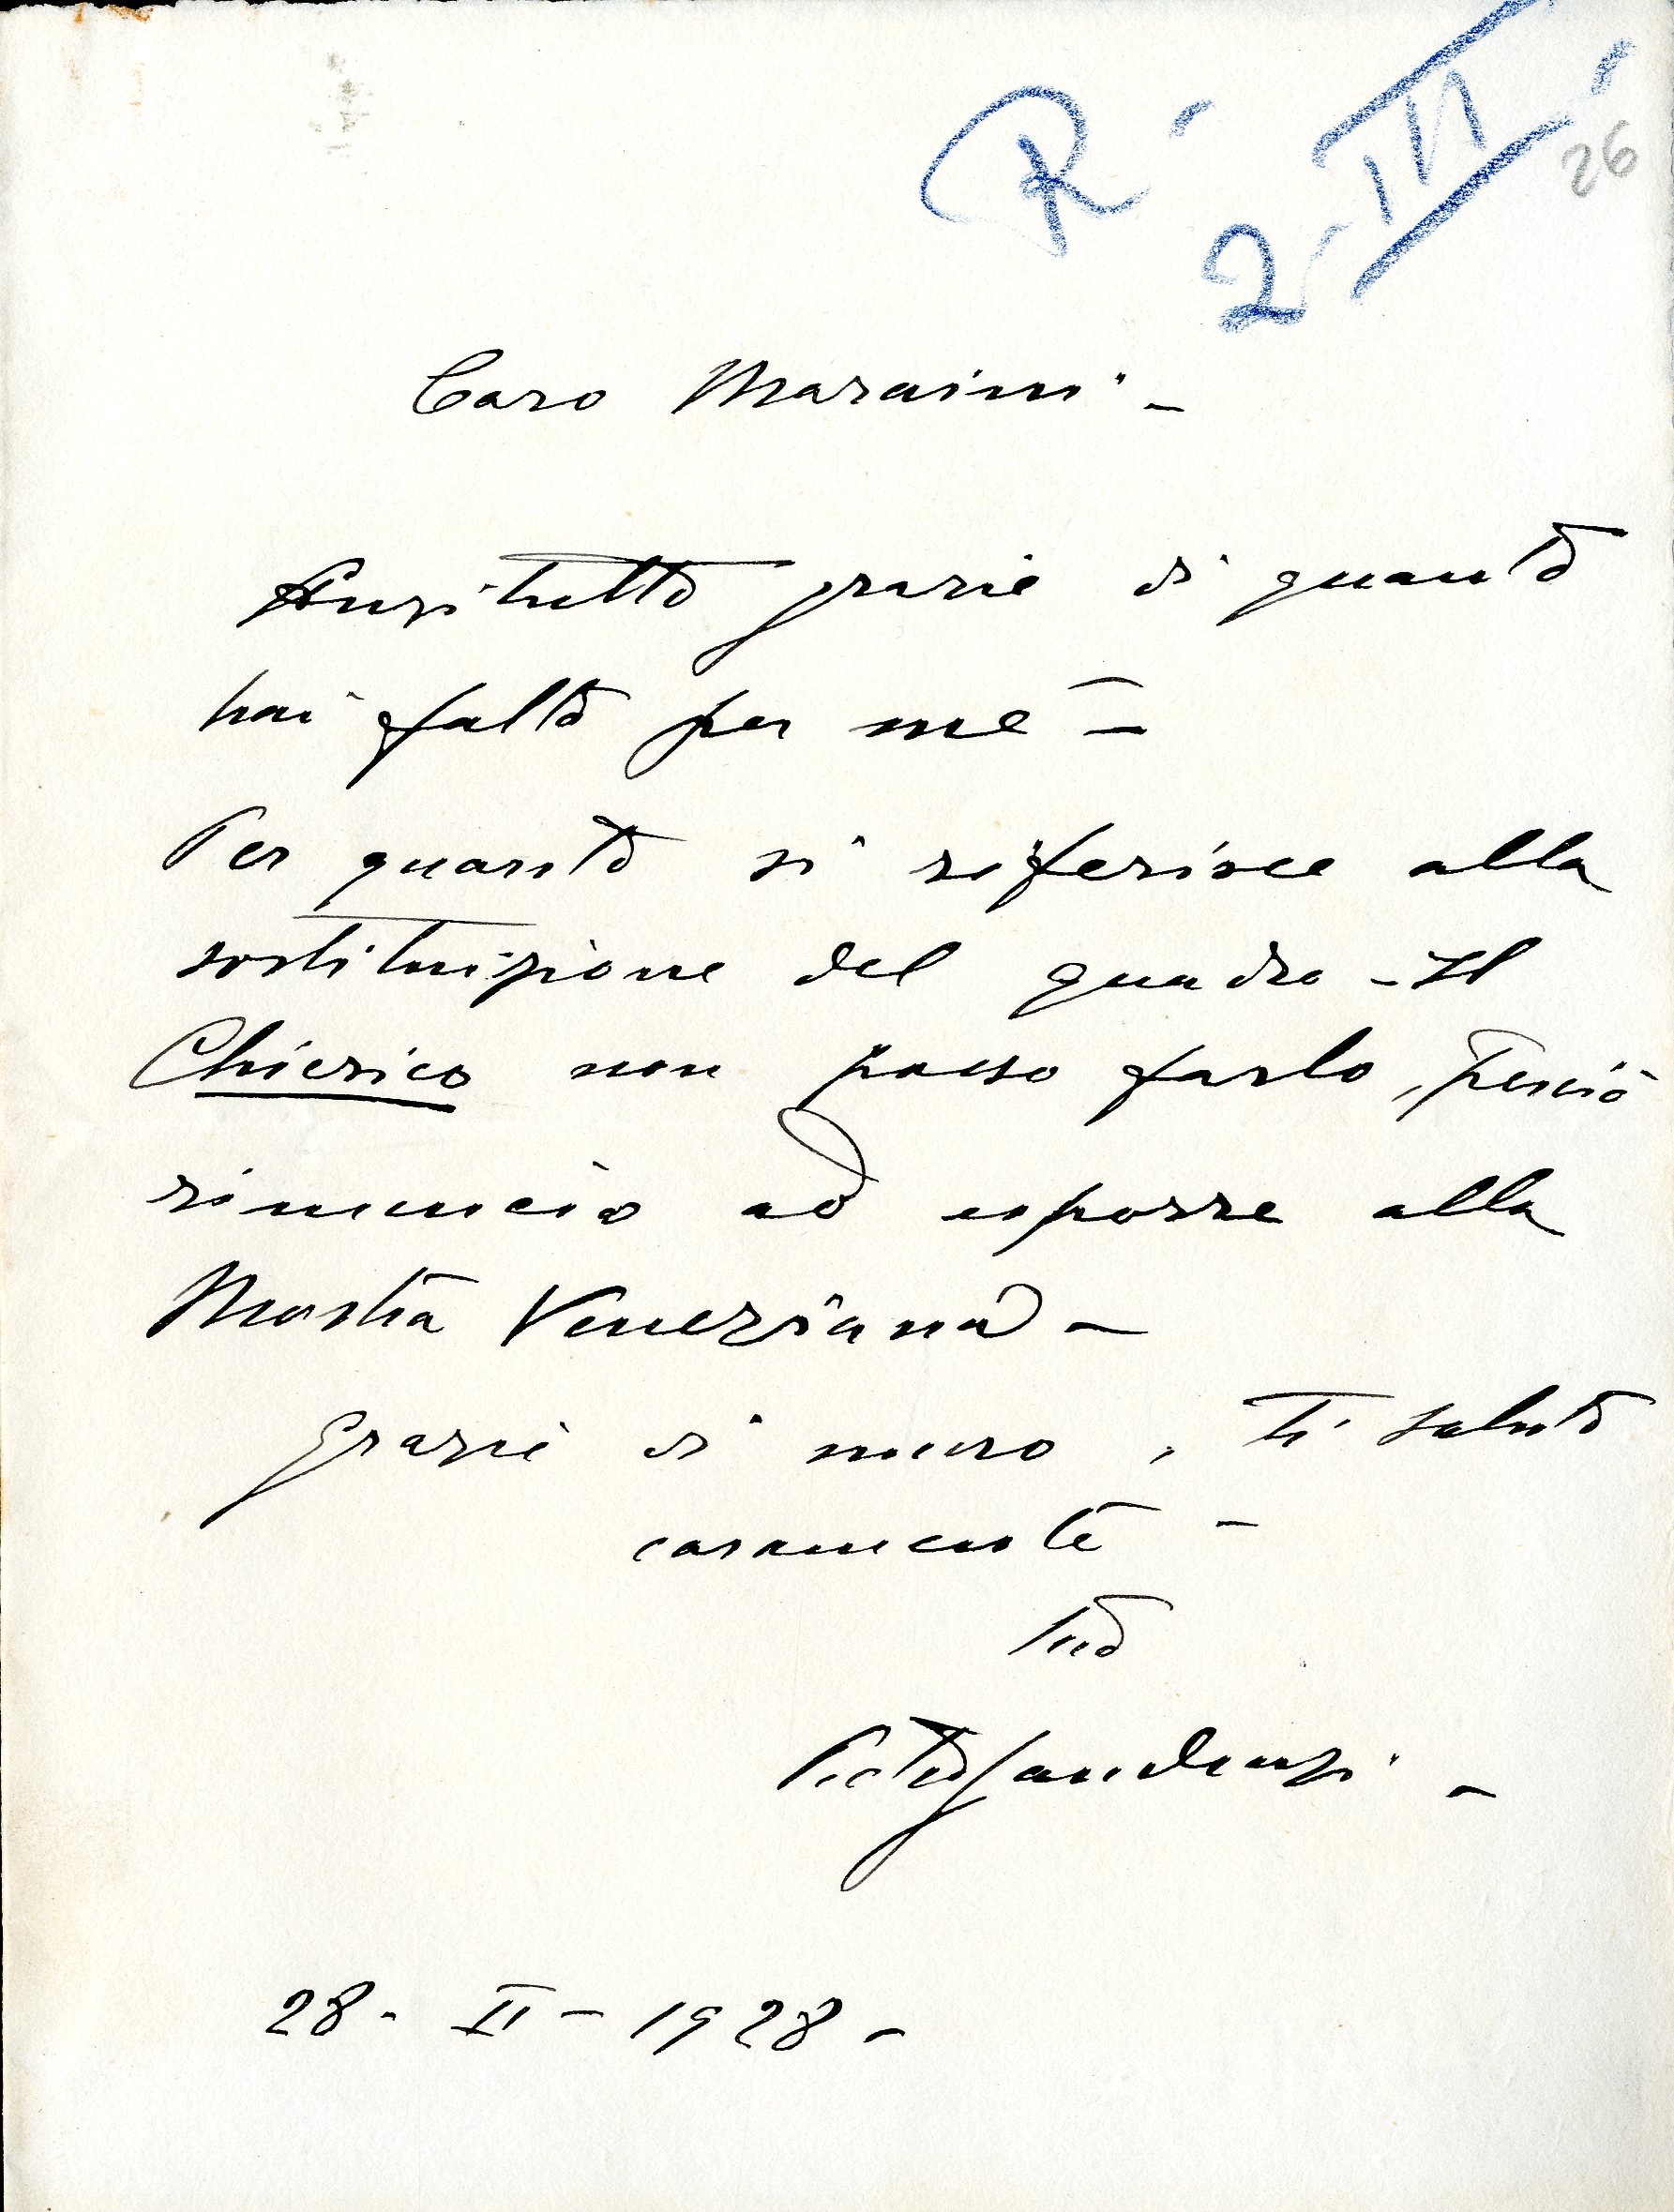 R.
2. III.
26
Caro Maraini -
Anzitutto grazie di quanto
hai fatto per me -
Per quanto si riferisce alla
sostituizione del quadro - Il
Chierico non posso farlo, perciò
rinuncio ad esporre alla
Mostra Veneziana -
Grazie di nuovo, ti saluto
caramente -
tuo
Pietro Gaudenzi -
28 - II - 1928 -